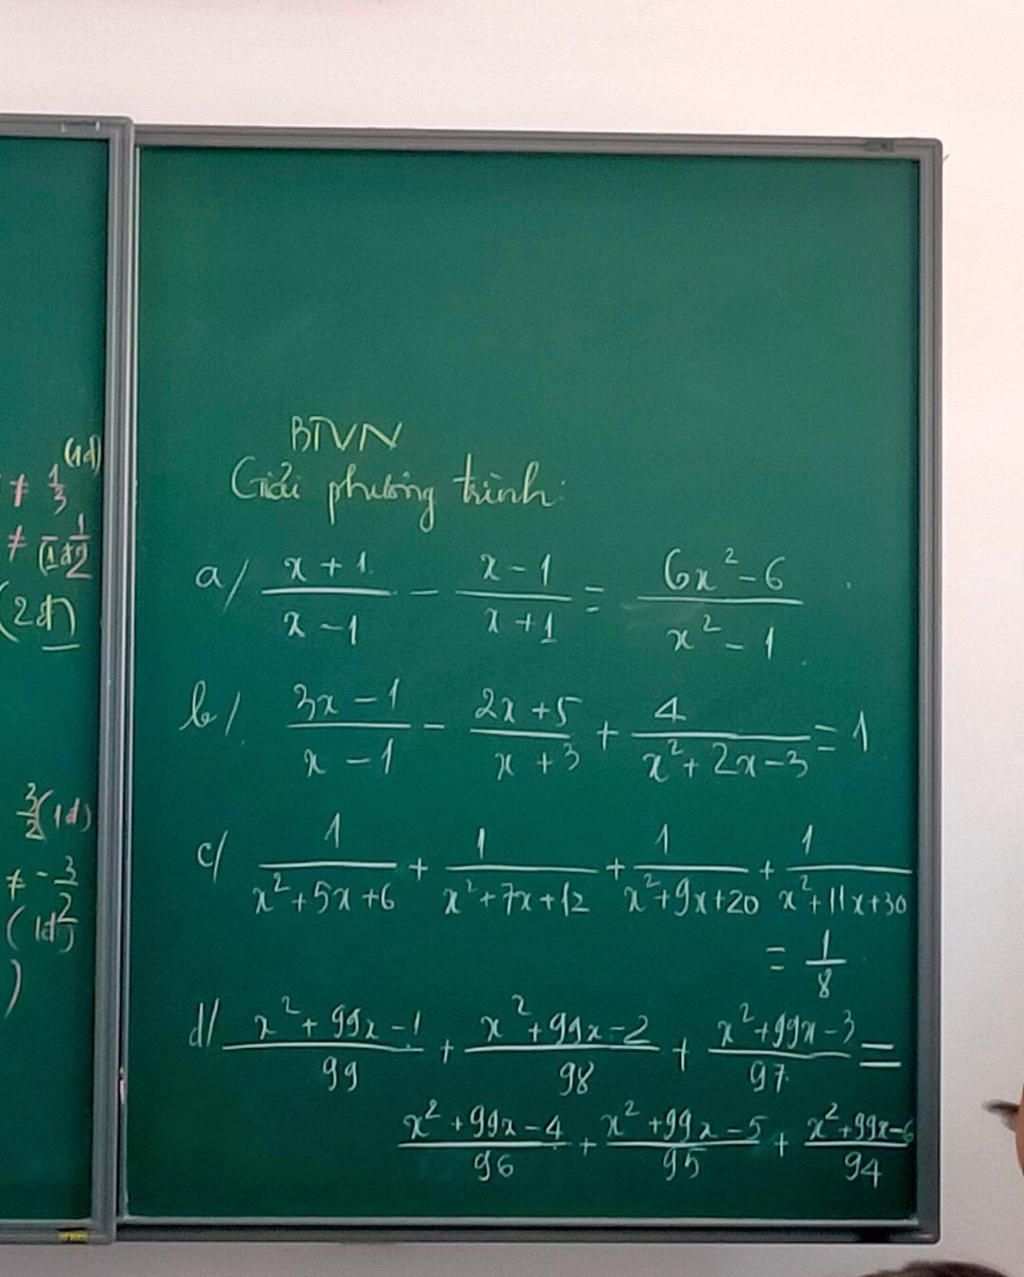 (1đ)
≠ 1/3
≠ 1/2
(2đ)
3/2 (1đ)
≠ -3/2
(1đ)
)
BTVN
Giải phương trình:
a/ (x+1)/(x-1) - (x-1)/(x+1) = (6x²-6)/(x²-1)
b/ (3x-1)/(x-1) - (2x+5)/(x+3) + 4/(x²+2x-3) = 1
c/ 1/(x²+5x+6) + 1/(x²+7x+12) + 1/(x²+9x+20) + 1/(x²+11x+30)
= 1/8
d/ (x²+99x-1)/99 + (x²+99x-2)/98 + (x²+99x-3)/97 =
(x²+99x-4)/96 + (x²+99x-5)/95 + (x²+99x-6)/94